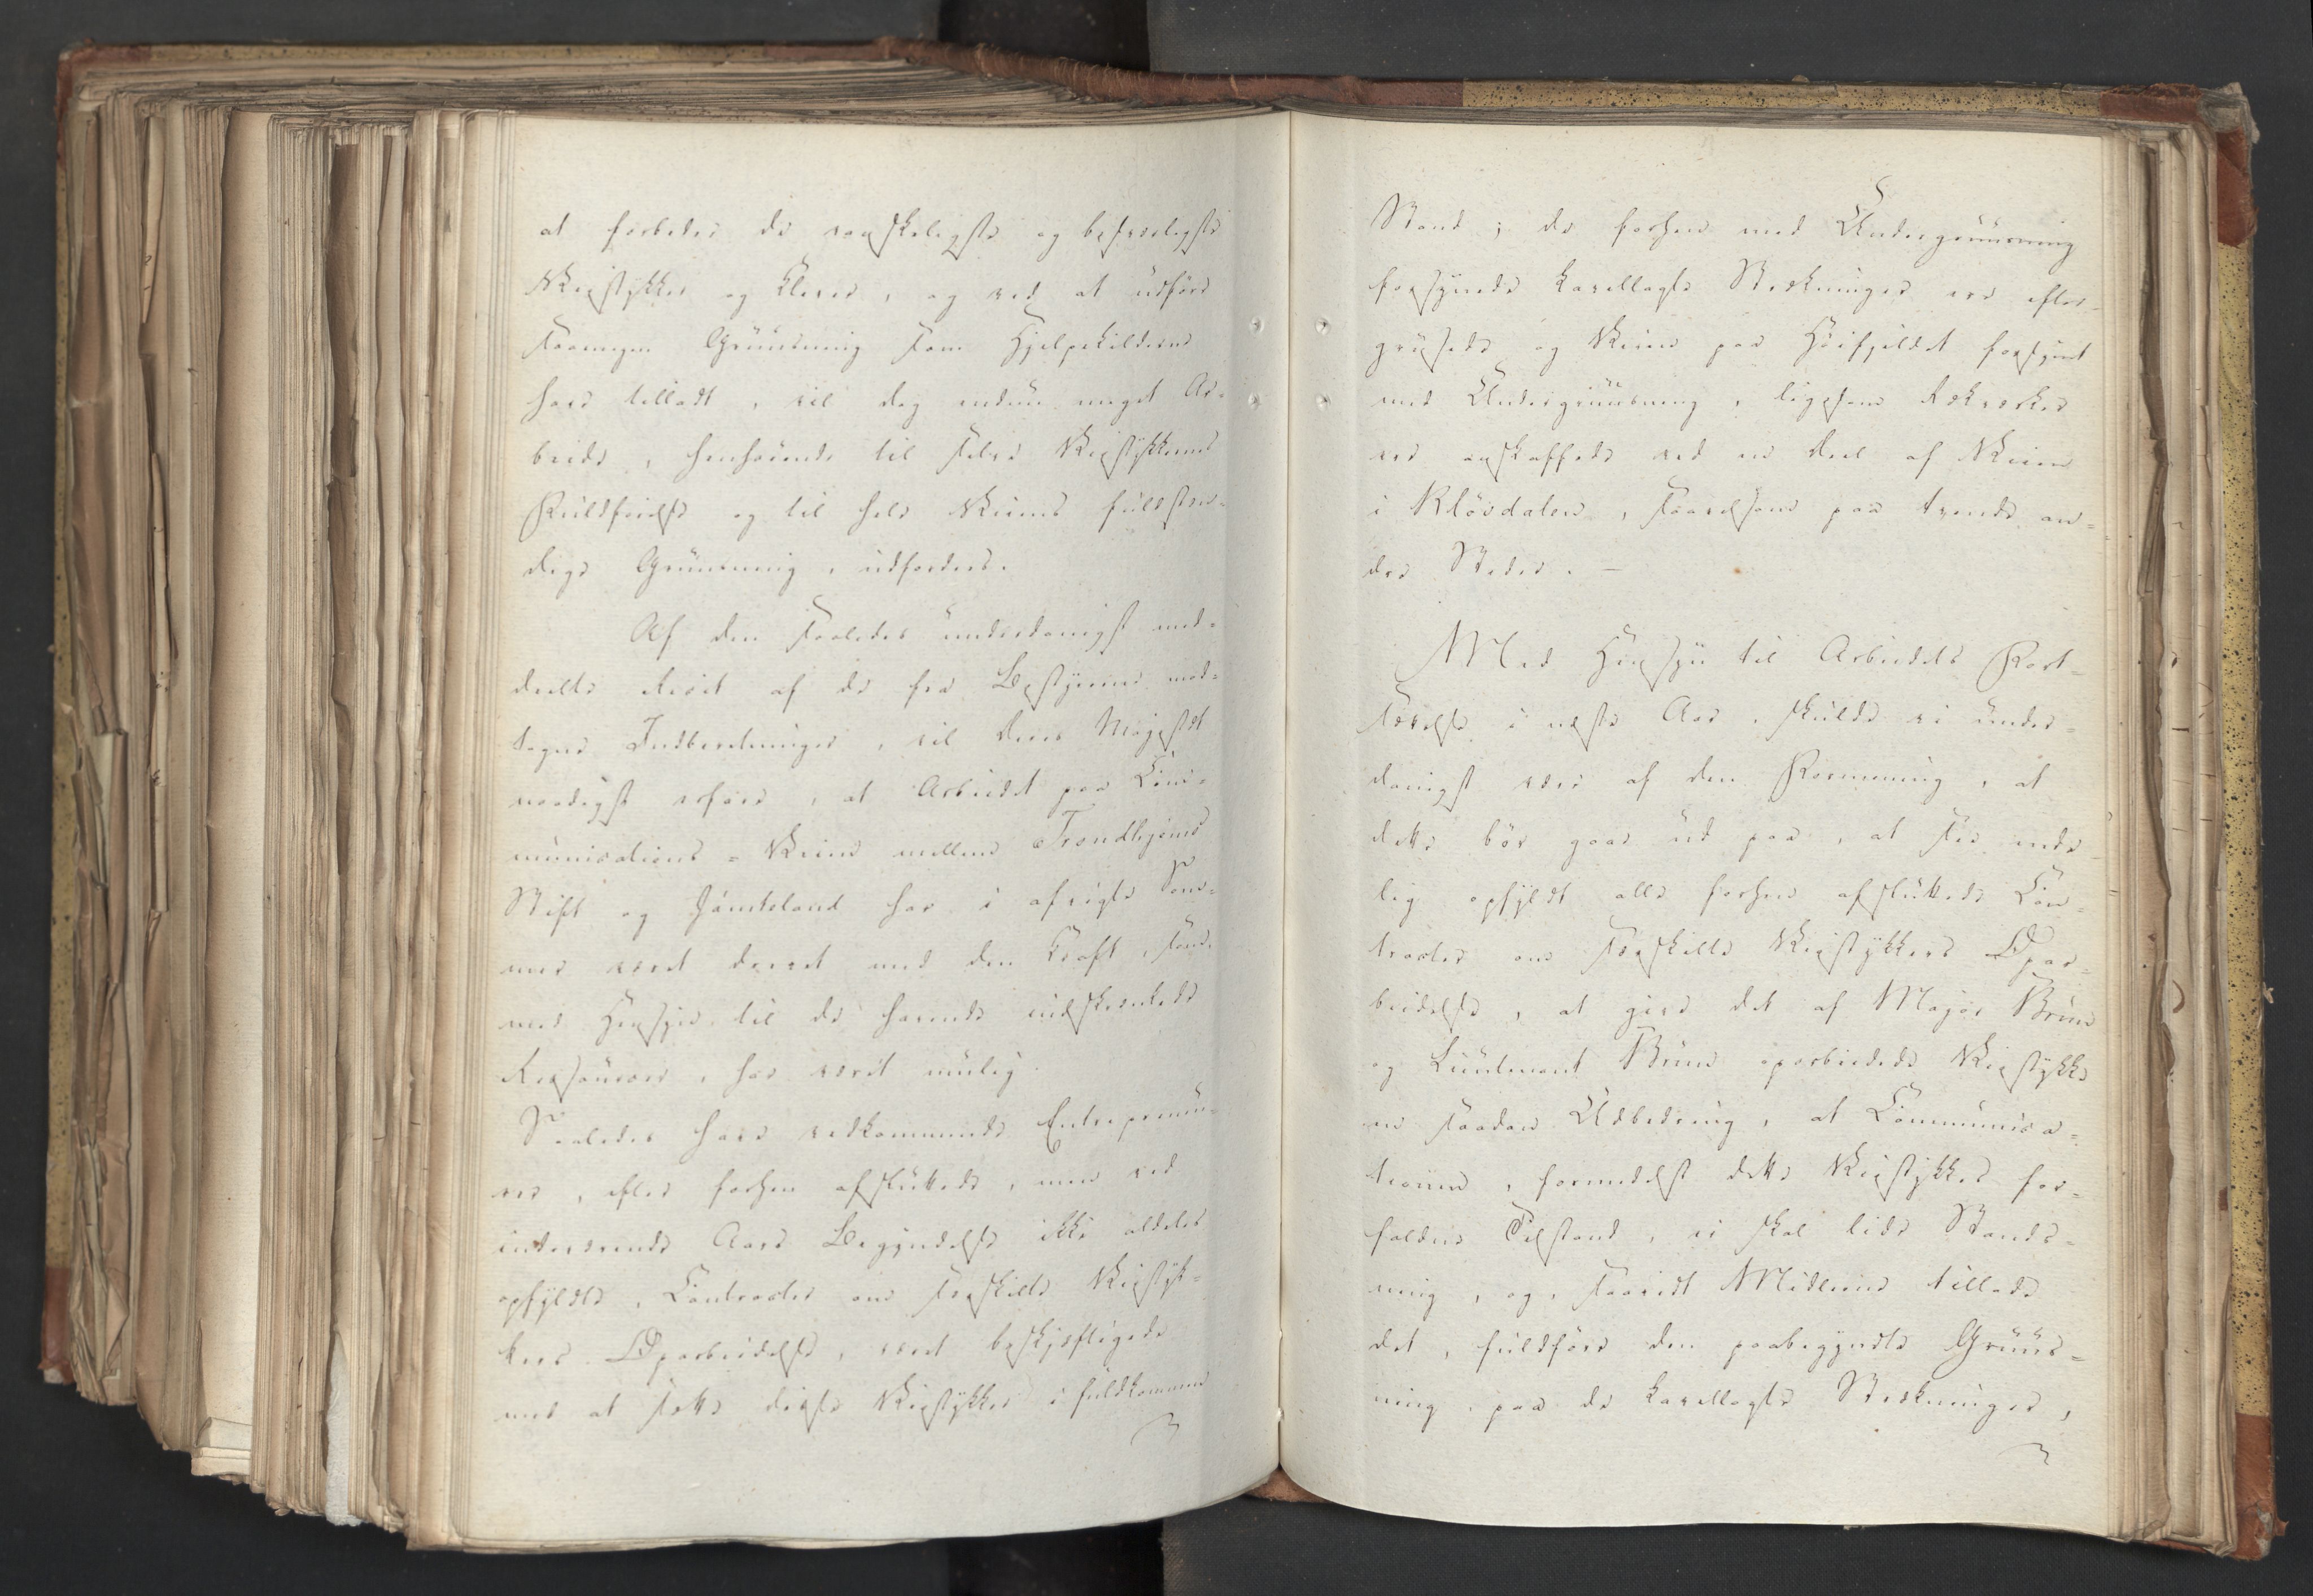 at forbedre de vanskeligste og besværligste
Veistykker og Klever, og ved at udføre
saamegen Gruusning som Hjelpekilderne
have tilladt, vil dog endnu meget Ar-
beide, henhørende til selve Veistykkernes
Fuldførelse og til hele Veiens fuldstæn-
dige Gruusning, udfordres.
Af den saaledes underdanigst med-
deelte Revüe af de fra Bestyrerne mod-
tagne Indberetninger, vil Deres Majestæt
naadigst erfare, at Arbeidet paa Com-
munications-Veien mellem Trondhjems
Stift og Jämteland har i afvigte Som-
mer været drevet med den Kraft, som,
med Hensyn til de havende indskrænkede
Ressourcer, har været mulig.
Saaledes have vedkommende Entrepreneu-
rer, efter forhen afsluttede, men ved
indeværende Aars Begyndelse ikke aldeles
opfyldte, Contracter om særskilte Veistyk-
kers Oparbeidelse, været beskjæftigede
med at sætte disse Veistykker i fuldkommen
Stand; de forhen med Undergruusning
forsynede kavellagte Strækninger ere efter-
grusede og Veien paa Høifjeldet forsynet
med Undergruusning, ligesom Rækværker
ere anskaffede ved en Deel af Veien
i Kløvdalen, saavelsom paa trende an-
dre Steder. —
Med Hensyn til Arbeidets Fort-
sættelse i næste Aar, skulde vi under-
danigst være af den Formening, at
dette bør gaae ud paa, at see ende-
lig opfyldt alle forhen afsluttede Con-
tracter om særskilte Veistykkers Opar-
beidelse, at give det af Major Brun
og Lieutenant Brun oparbeidede Veistykke
en saadan Udbedring, at Communica-
tionen, formedelst dette Veistykkes for-
faldne Tilstand, ei skal lide Stands-
ning, og, saavidt Midlerne tillade
det, fuldføre den paabegyndte Gruus-
ning paa de kavellagte Strækninger,